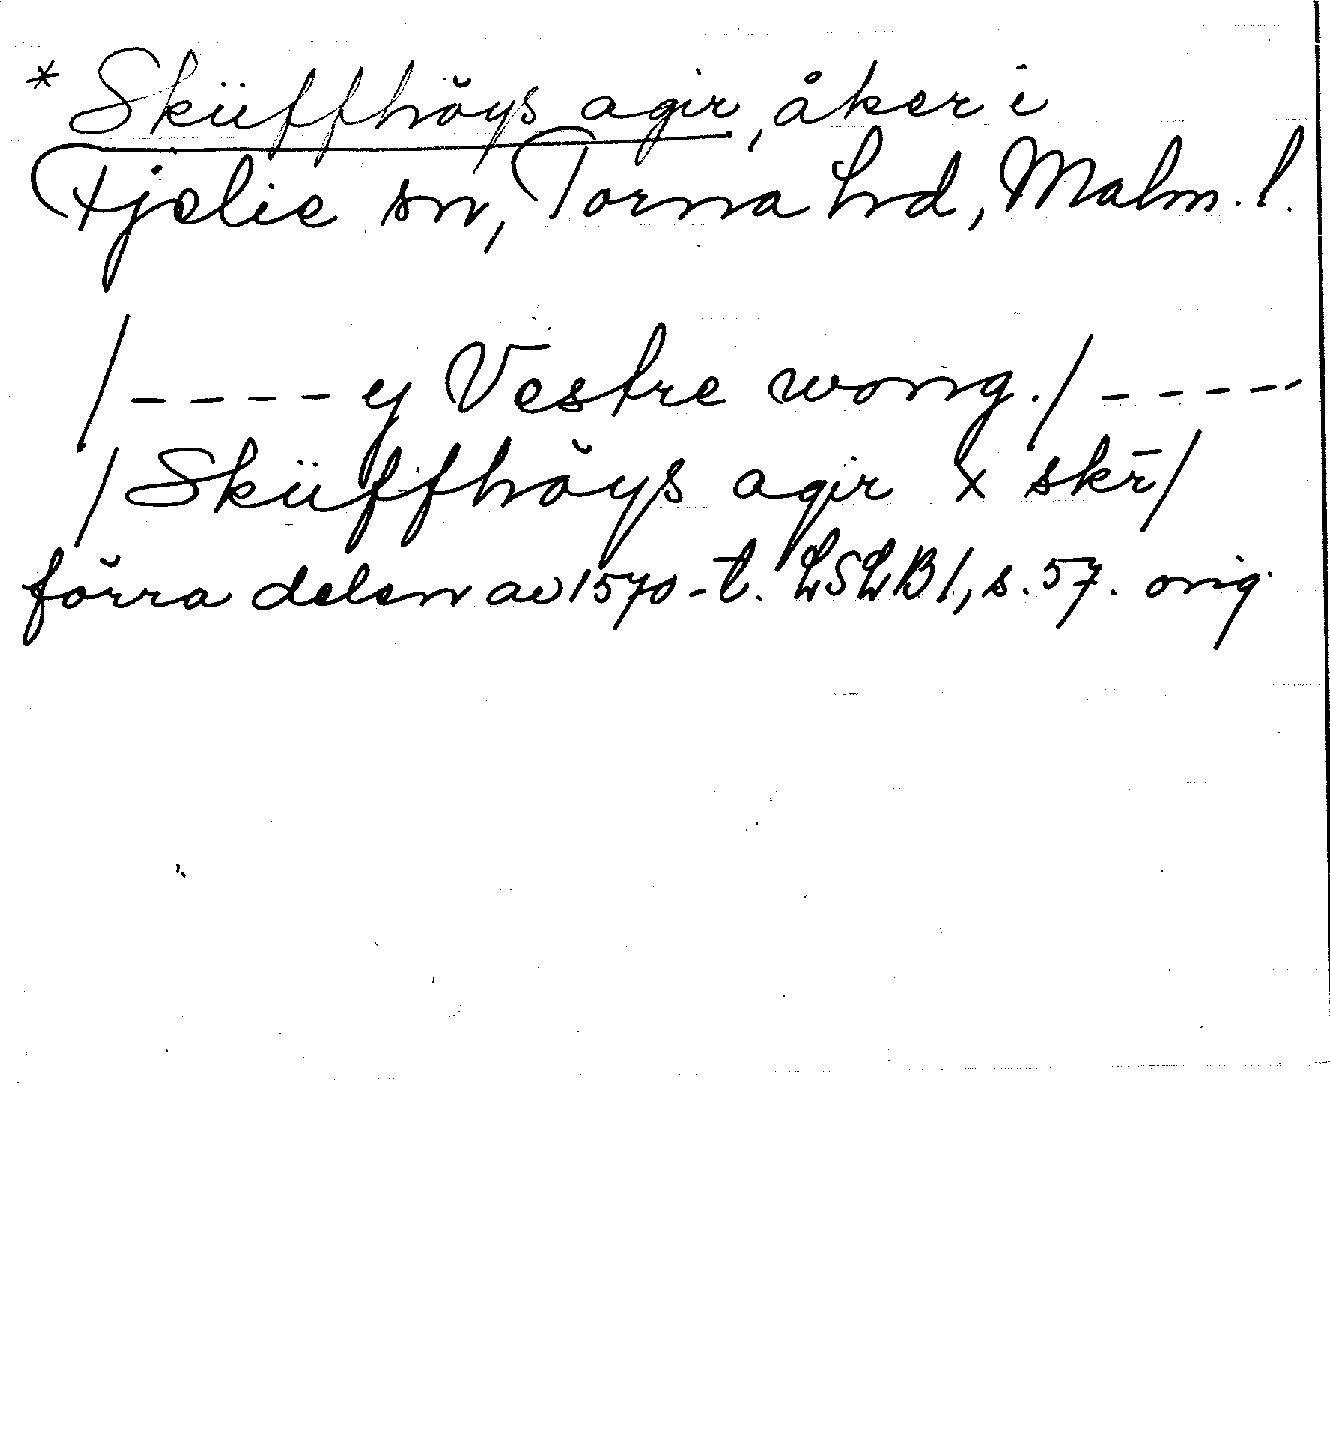 * Sküffhöys agir, åker i
Fjelie sn, Torna hd, Malm. l.
/---- ej Vestre wong./-----
/Sküffhöys agir x skr̄/
förra delen av 1570-t. LSLB1, s. 57. orig.